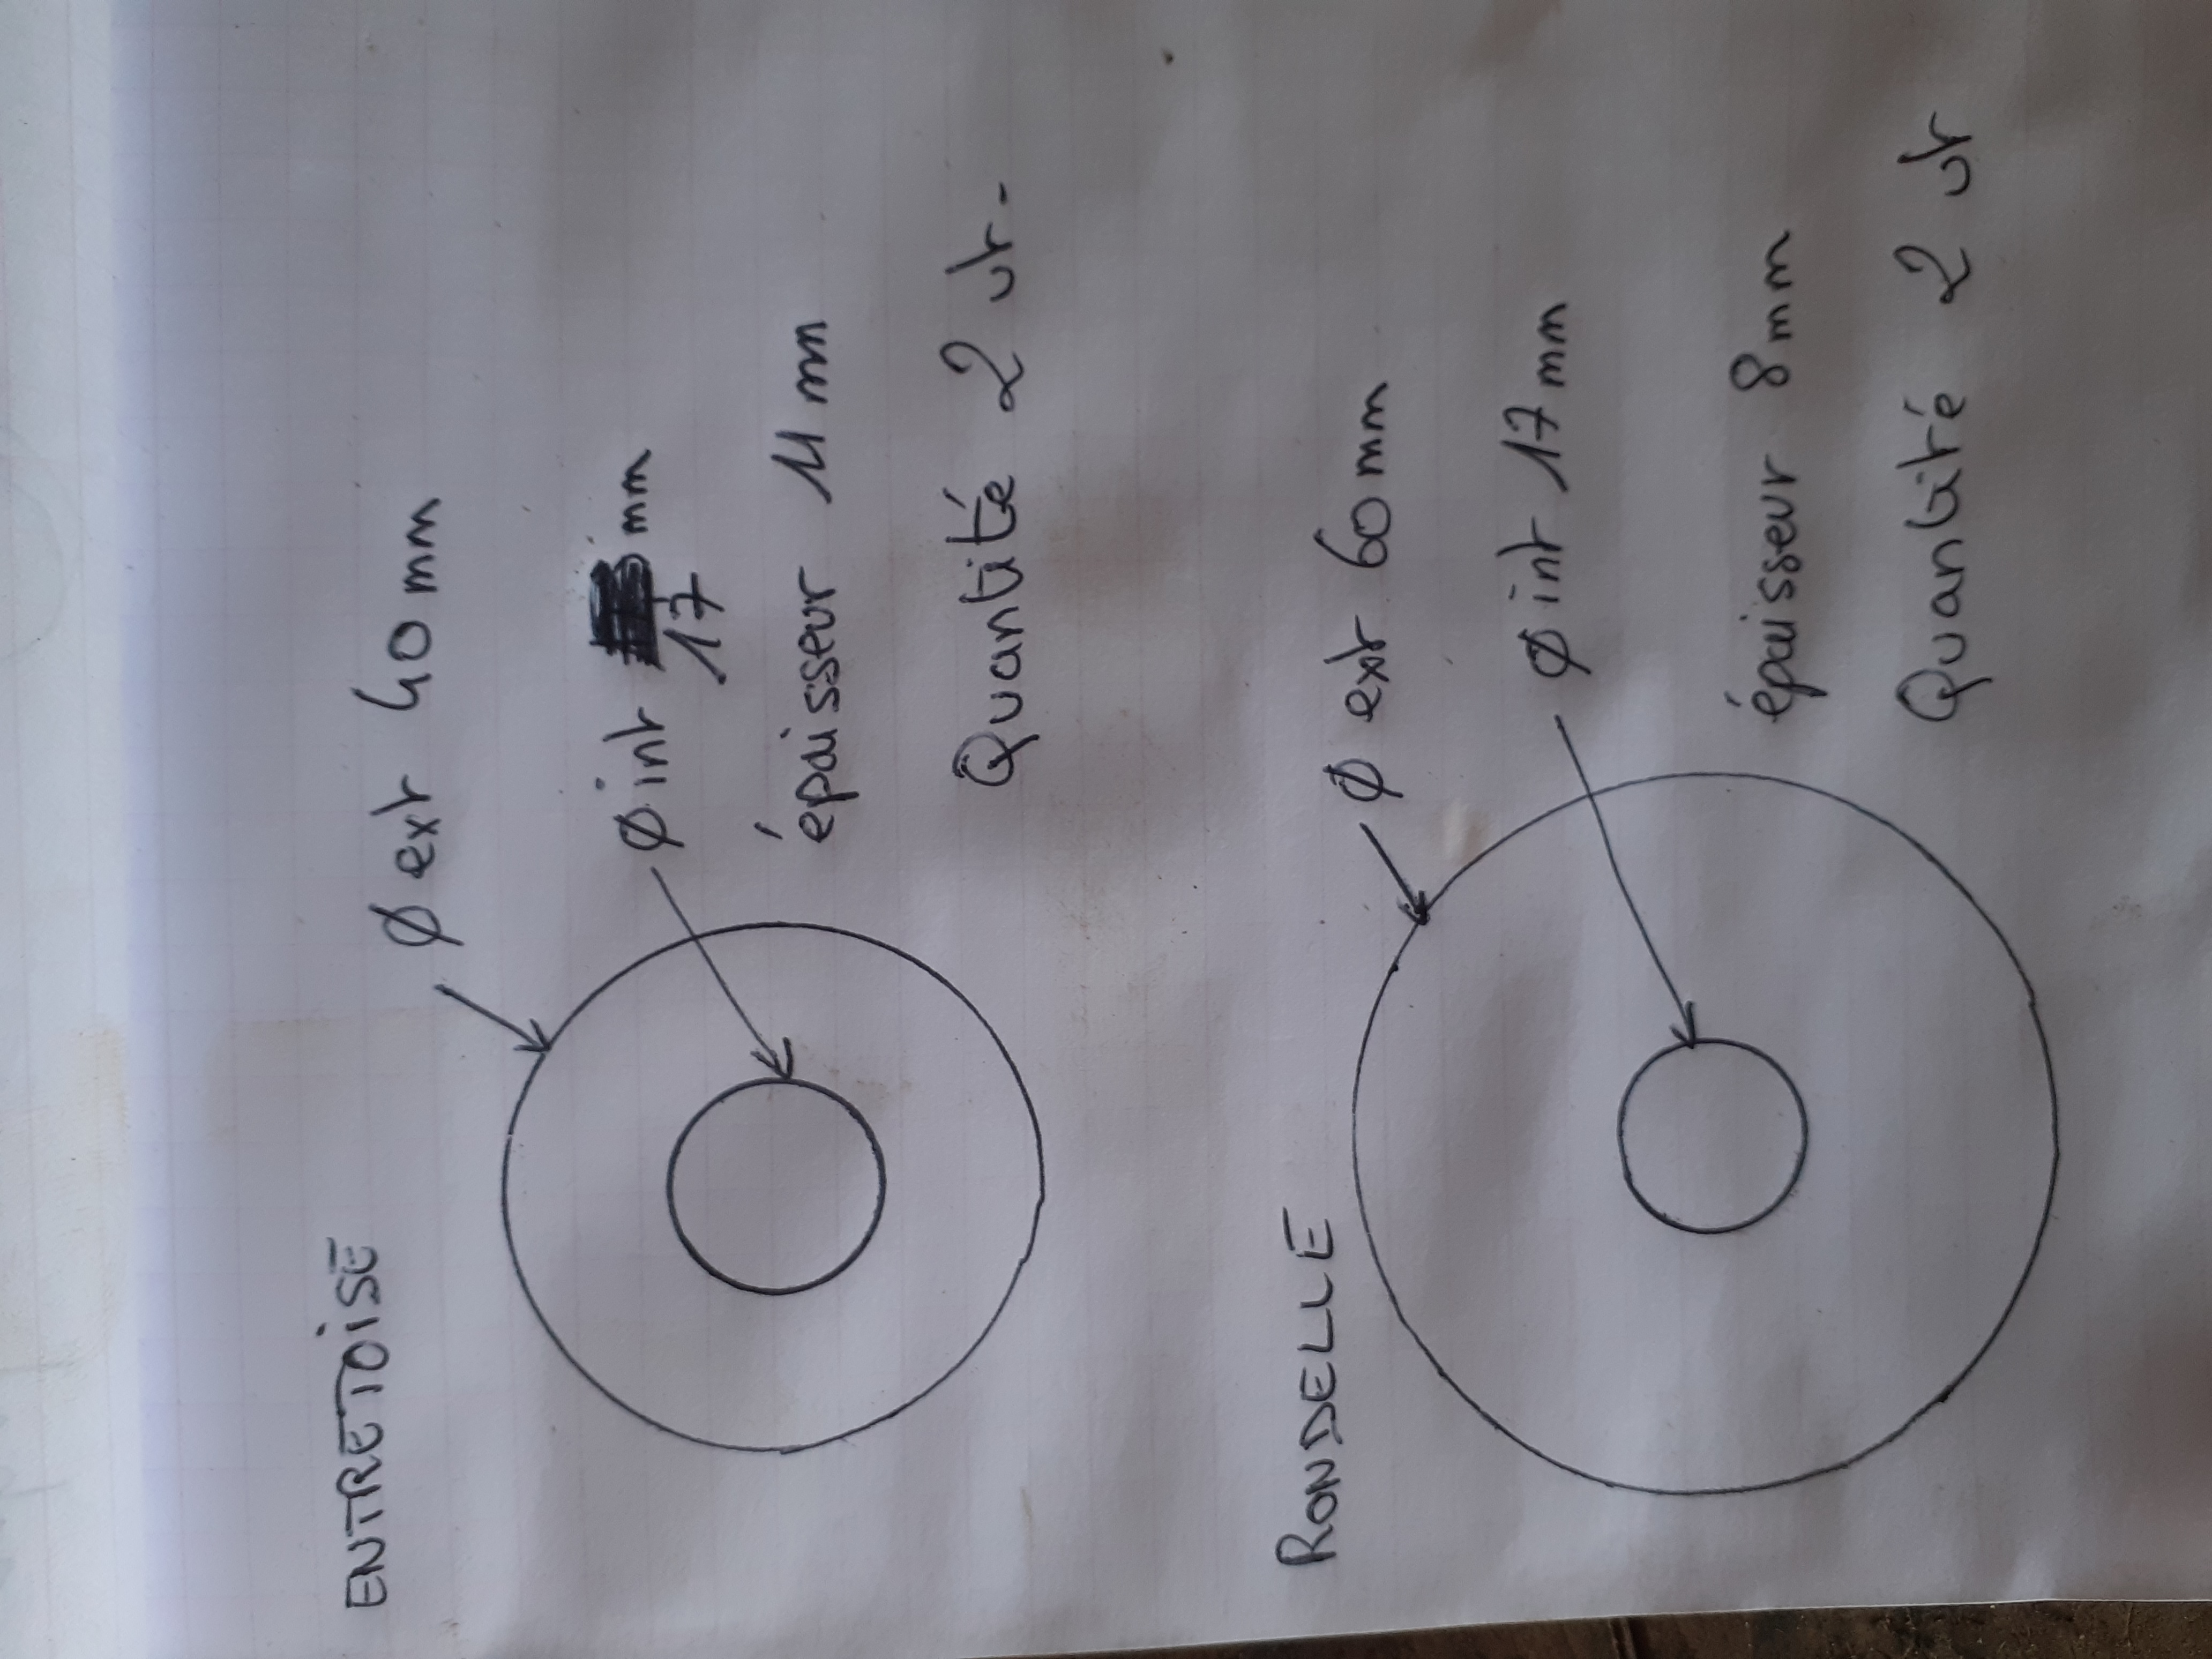 ENTRETOISE
Ø ext 40 mm
Ø int mm
17
épaisseur 11 mm
Quantité 2 ut.
RONDELLE
Ø ext 60 mm
Ø int 17 mm
épaisseur 8 mm
Quantité 2 ut